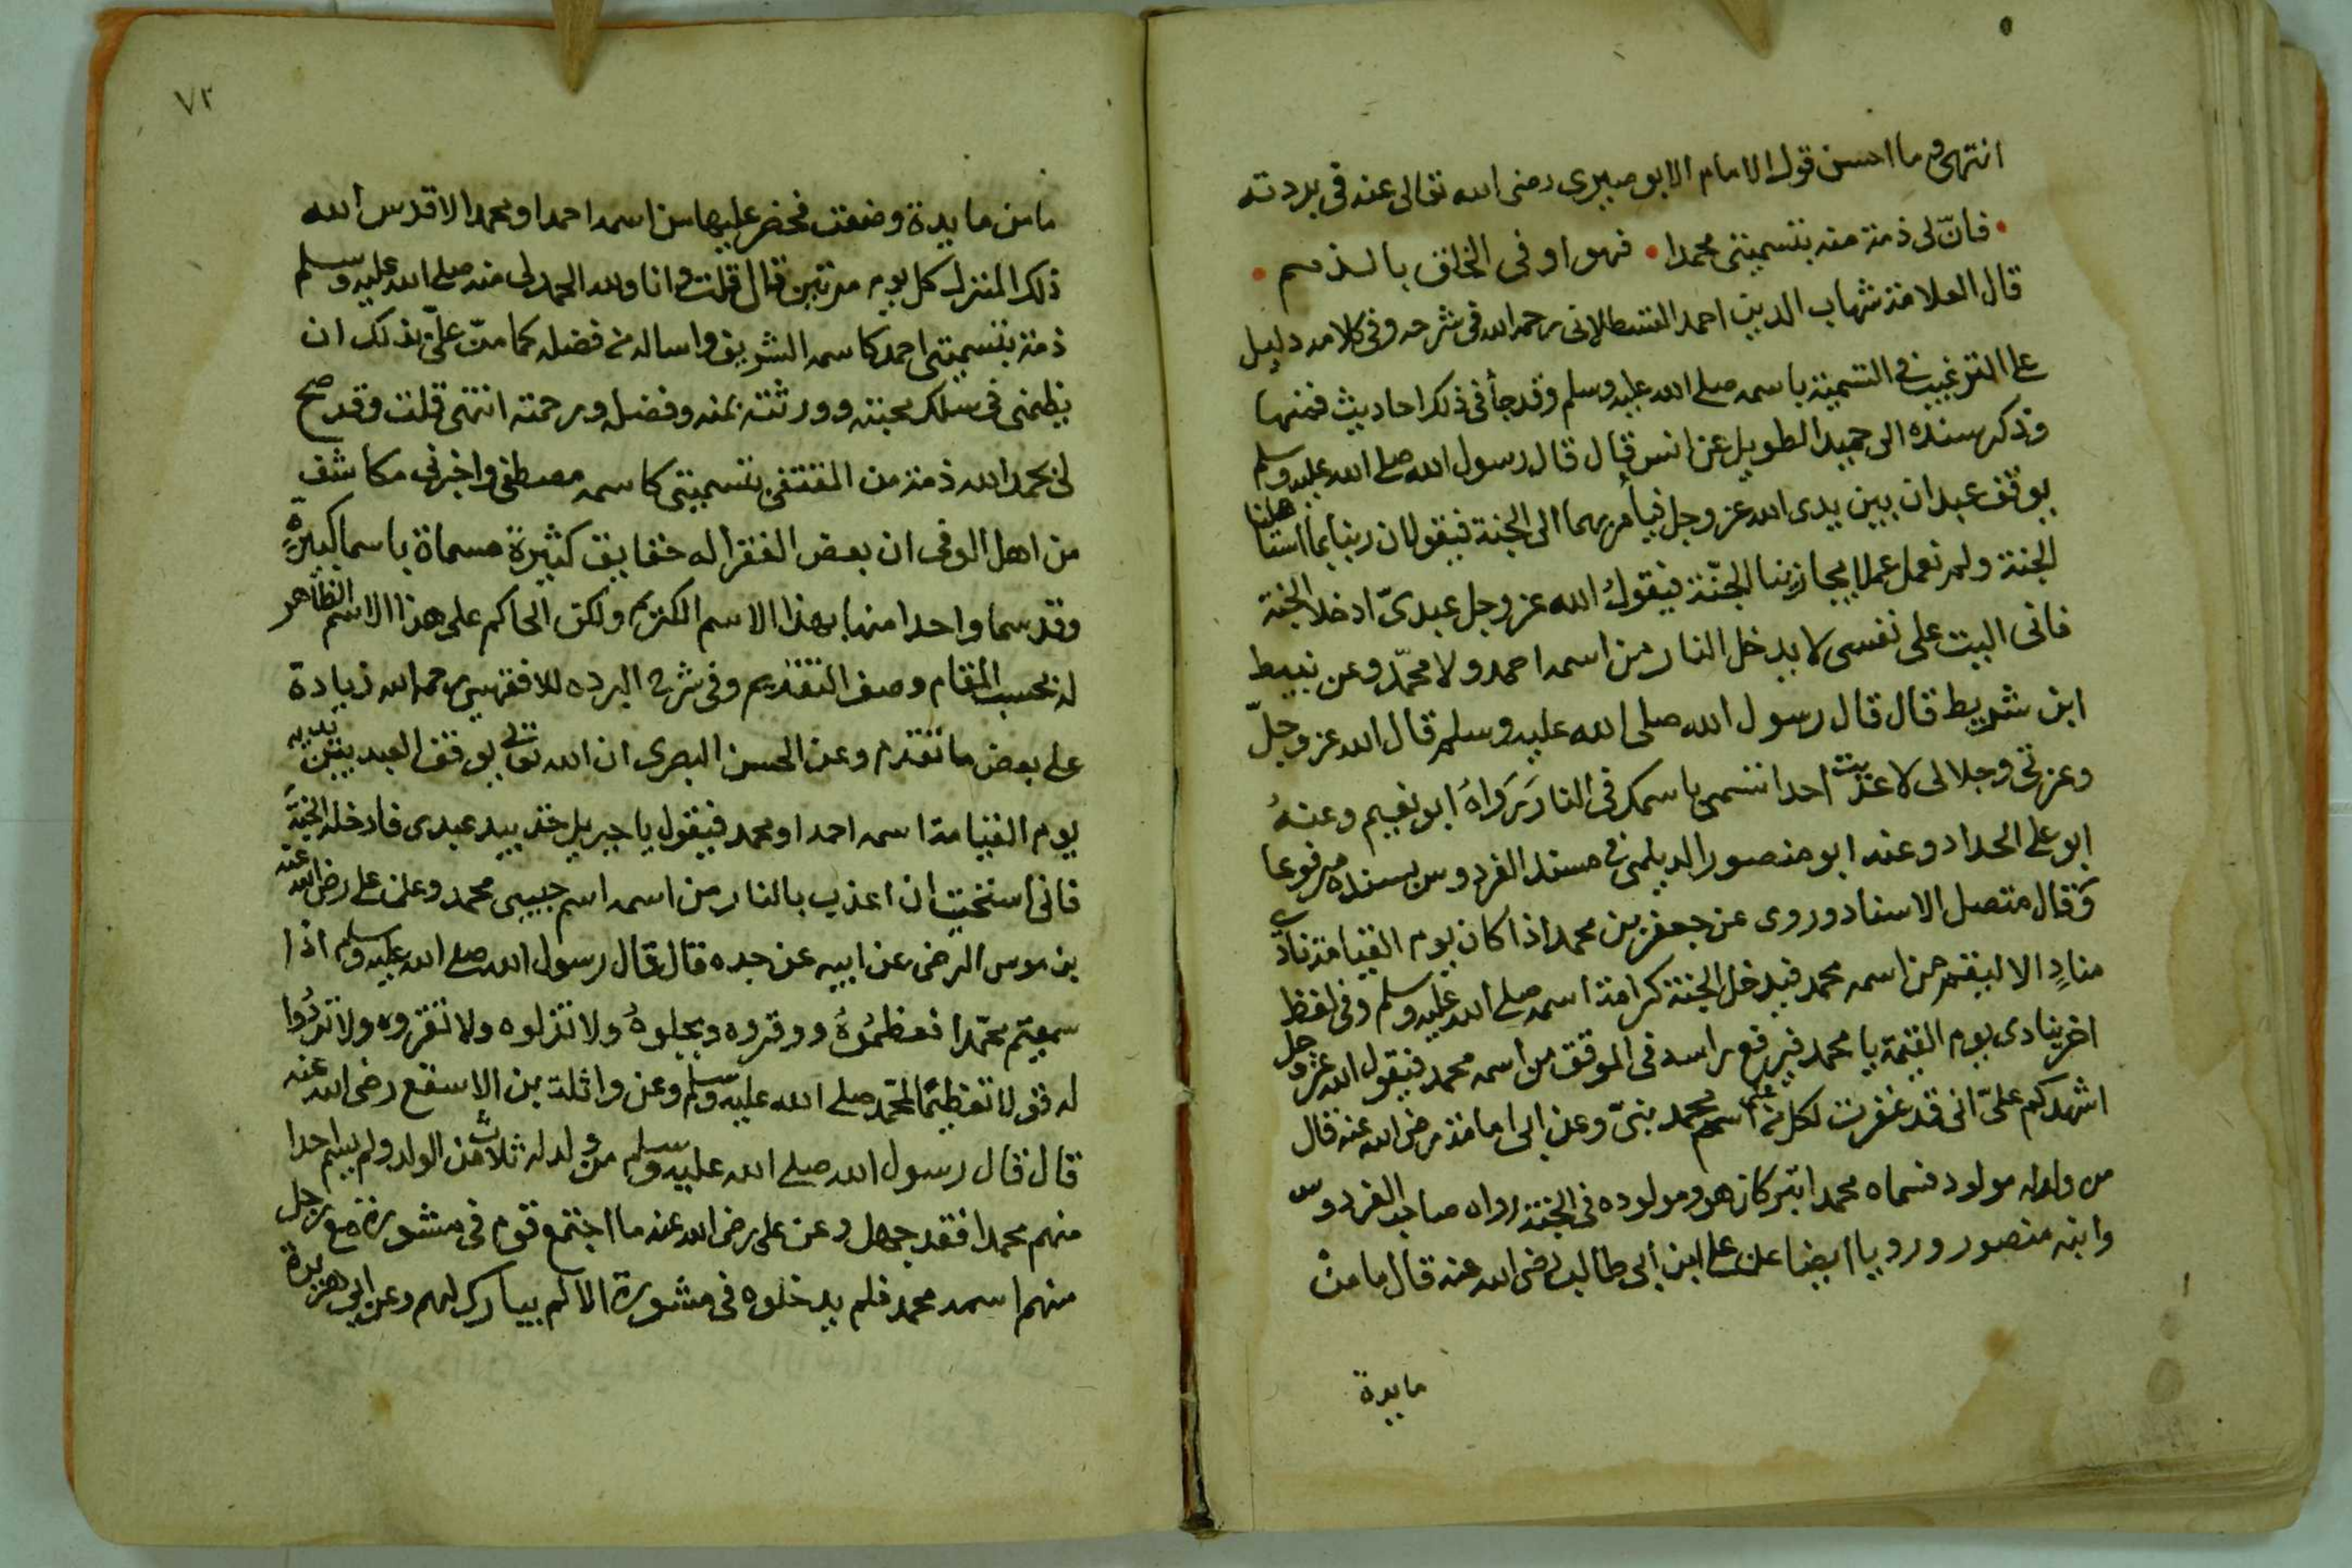 انتهى وما احسن قول الامام الابوصيري رضى الله تعالى عنه فى بردته
• فانّ لى ذمة منه بتسميتى محمدا • فهو اوفى الخلق بالذمم •
قال العلامة شهاب الدين احمد القسطلانى رحمه الله فى شرحه وفى كلامه دليل
على الترغيب فى التسمية باسمه صلى الله عليه وسلم وقد جأ فى ذلك احاديث فمنها
وذكر سنده الى حميد الطويل عن انس قال قال رسول الله صلى الله عليه وسلم
يوقف عبدان بين يدى الله عز وجل فيأمر بهما الى الجنة فيقولان ربنا بما استاهلنا
الجنة ولم نعمل عملا يجازينا الجنّة فيقولُ الله عز وجل عبدىّ ادخلا الجنة
فانى اليت على نفسى لا يدخل النار من اسمه احمد ولا محمّد وعن نبيط
ابن شريط قال قال رسول الله صلى الله عليه وسلم قال الله عز وجلّ
وعزتى وجلالى لا عذبت احدا تسمى باسمك فى النار رَوَاهُ ابو نعيم وعنهُ
ابو على الحداد وعنه ابو منصور الديلمى فى مسند الفردوس بسنده مرفوعا
وَقال متصل الاسناد وروى عن جعفر بن محمد اذا كان يوم القيامة نادى
منادٍ الا ليقم من اسمه محمد فيدخل الجنة كرامة اسمه صلى الله عليه وسلم وفى لفظ
اخر ينادى يوم القيمة يا محمد فيرفع راسه فى الموقف من اسمه محمد فيقول الله عز وجل
اشهدكم علىّ انى قد غفرت لكل من اسمه على اسم محمد بنىّ وعن ابى امامة رضى الله عنه قال
من ولد له مولود فسماه محمدا تبركا كان هو ومولوده فى الجنة رواه صاحب الفردوس
وابنه منصور ورويا ايضا عن على ابن ابى طالب رضى الله عنه قال ما منْ
مايدة
٧٢
ما من مايدة وضعت فحضر عليها من اسمه احمد او محمد الا قدس الله
ذلك المنزل كل يوم مرتين قال قلت وانا ولله الحمد لى منه صلى الله عليه وسلم
ذمة بتسميتى احمد كاسمه الشريف واساله من فضله كما منّ علىّ بذلك ان
ينظمنى فى سلك محبته وورثته بمنه وفضله ورحمته انتهى قلت وقد صح
لى بحمد الله ذمة من المقتفى بتسميتى كاسمه مصطفى واخبرنى مكاشف
من اهل الوفى ان بعض الفقرا له حقايق كثيرة مسماة باسما كبيرةٍ
وقد سما واحدا منها بهذا الاسم الكريم ولكن الحاكم على هذا الاسم الظاهر
له بحسب المقام وصف التقديم وفى شرح البرده للاقفهسي رحمه الله زيادة
على بعض ما تقدم وعن الحسن البصرى ان الله تعالى يوقف العبد بين يديه
يوم القيامة اسمه احمد او محمد فيقول يا جبريل خذ بيد عبدى فادخله الجنّة
فانى استحيت ان اعذب بالنار من اسمه اسم حبيبى محمد وعن على رضى الله عنه
بن موسى الرضى عن ابيه عن جده قال قال رسول الله صلى الله عليه وسلم اذا
سميتم محمّدا فعظمُوهُ ووقروه وبجلوهُ ولا تذلوه ولا تقروه ولا تردُوا
له قولا تعظيمًا لمحمد صلى الله عليه وسلم وعن واثلة بن الاسقع رضى الله عنه
قال قال رسول الله صلى الله عليه وسلم من ولد له ثلاث من الولد ولم يسم احدا
منهم محمدا فقد جهل وعن على رضى الله عنه ما اجتمع قوم فى مشورة مع رجل
منهم اسمه محمد فلم يدخلوه فى مشورة الا لم يبارك لهم وعن ابى هريرة